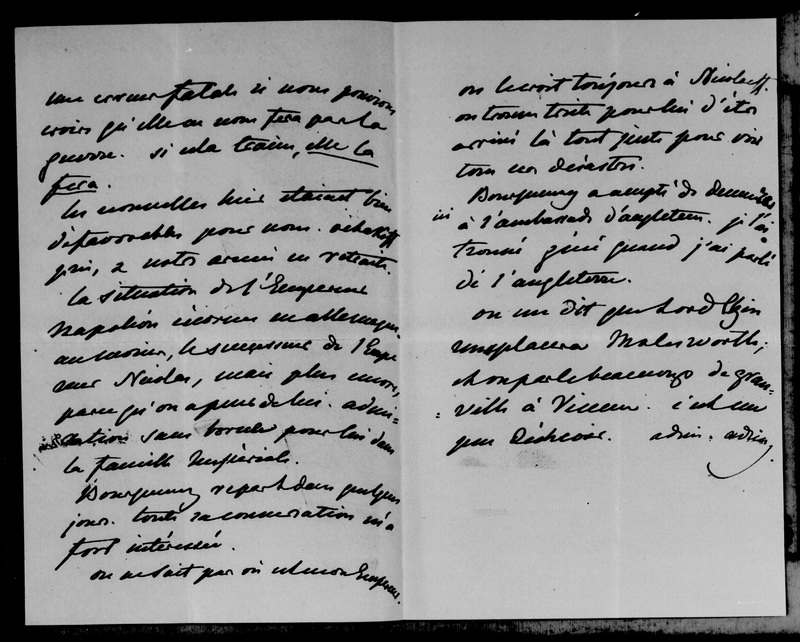 une erreur fatale si nous pouvions
croire qu'elle ne nous fera pas la
guerre. si cela traine, elle la
fera.
les nouvelles hier étaient bien
défavorables pour nous.
pris, & notre armée en retraite.
la situation de l'Empereur
Napoléon énorme en allemagne.
au moins, le successeur de l'Empe
reur Nicolas, mais plus encore,
parce qu'on a peur de lui. admi-
ration sans bornes pour lui dans
la famille Impériale.
Bourqueney repart dans quelques
jours. toute sa conversation m'a
fort intéressée.
on ne sait pas où est mon Empereur.
on le croit toujours à Nicolaeff.
on trouve triste pour lui d'être
arrivé là tout juste pour voir
tous ces désastres.
Bourqueney a accepté de
ici à l'ambassade d'angleterre. je l'ai
trouvé gêné quand j'ai parlé
de l'angleterre.
on me dit que Lord Elgin
remplacera Molesworth,
et on parle beaucoup de Gran-
ville à Vienne. c'est un
peu déchoir. adieu. adieu.